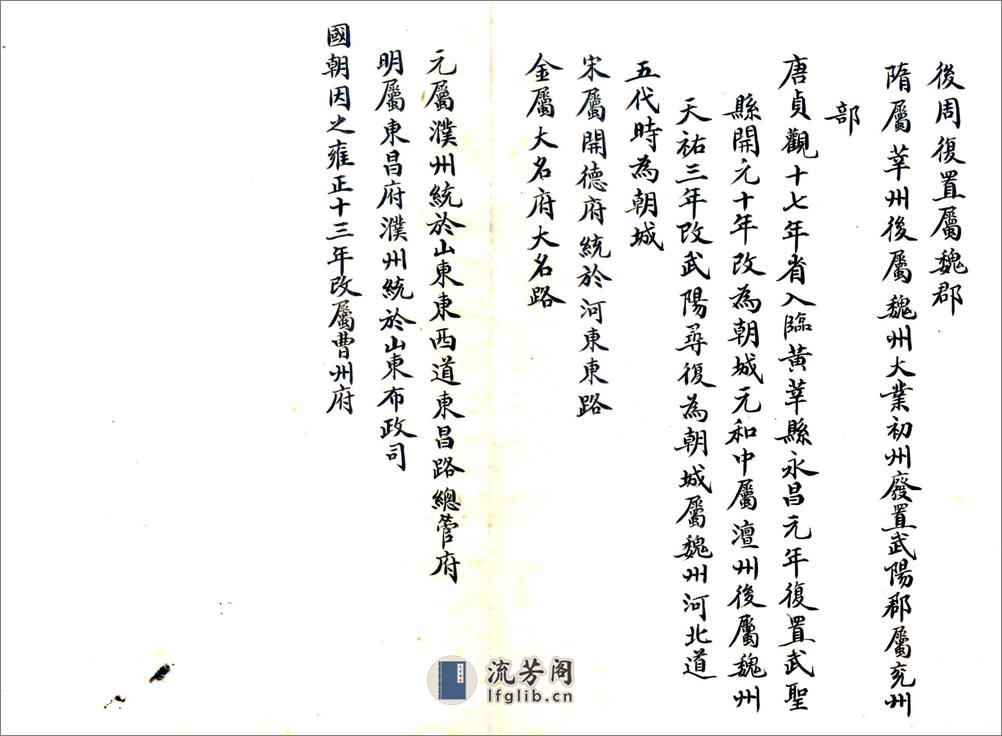 後周復置屬魏郡
隋屬莘州後屬魏州大業初州廢置武陽郡屬兖州
部
唐貞觀十七年省入臨黃莘縣永昌元年復置武聖
縣開元十年改為朝城元和中屬澶州後屬魏州
天祐三年改武陽尋復為朝城屬魏州河北道
五代時為朝城
宋屬開德府統於河東東路
金屬大名府大名路
元屬濮州統於山東東西道東昌路總管府
明屬東昌府濮州統於山東布政司
國朝因之雍正十三年改屬曹州府
流芳阁
lfglib.cn